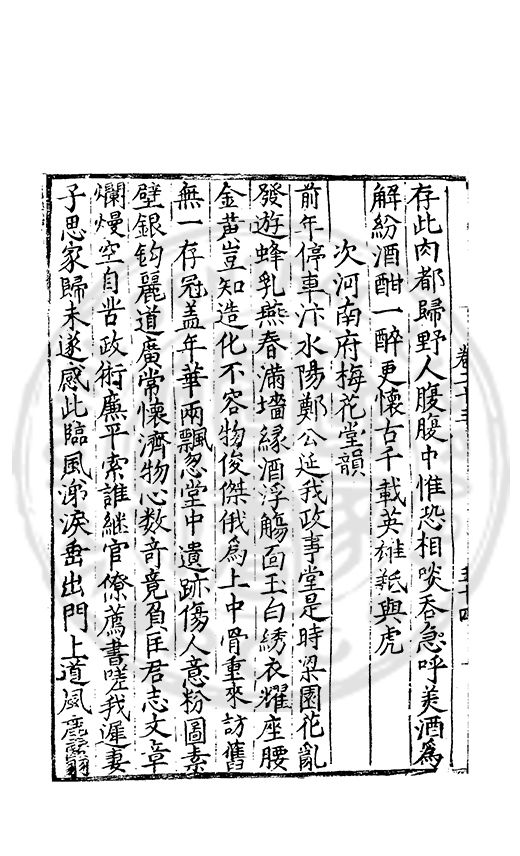 存此肉都歸野人腹腹中惟恐相啖吞急呼美酒爲
解紛酒酣一醉更懷古千載英雄羝與虎
次河南府梅花堂韻
前年停車汴水陽鄭公延我政事堂是時梁園花亂
發遊蜂乳燕春滿墻緑酒浮觴面玉白綉衣耀座腰
金黃豈知造化不容物俊傑俄爲土中骨重來訪舊
無一存冠盖年華兩飄忽堂中遺跡傷人意粉圖素
壁銀鈎麗道廣常懷濟物心数奇竟負匡君志文章
爛熳空自苦政術廉平索誰継官僚薦書嗟我遲妻
子思家歸未遂感此臨風涕淚垂出門上道風